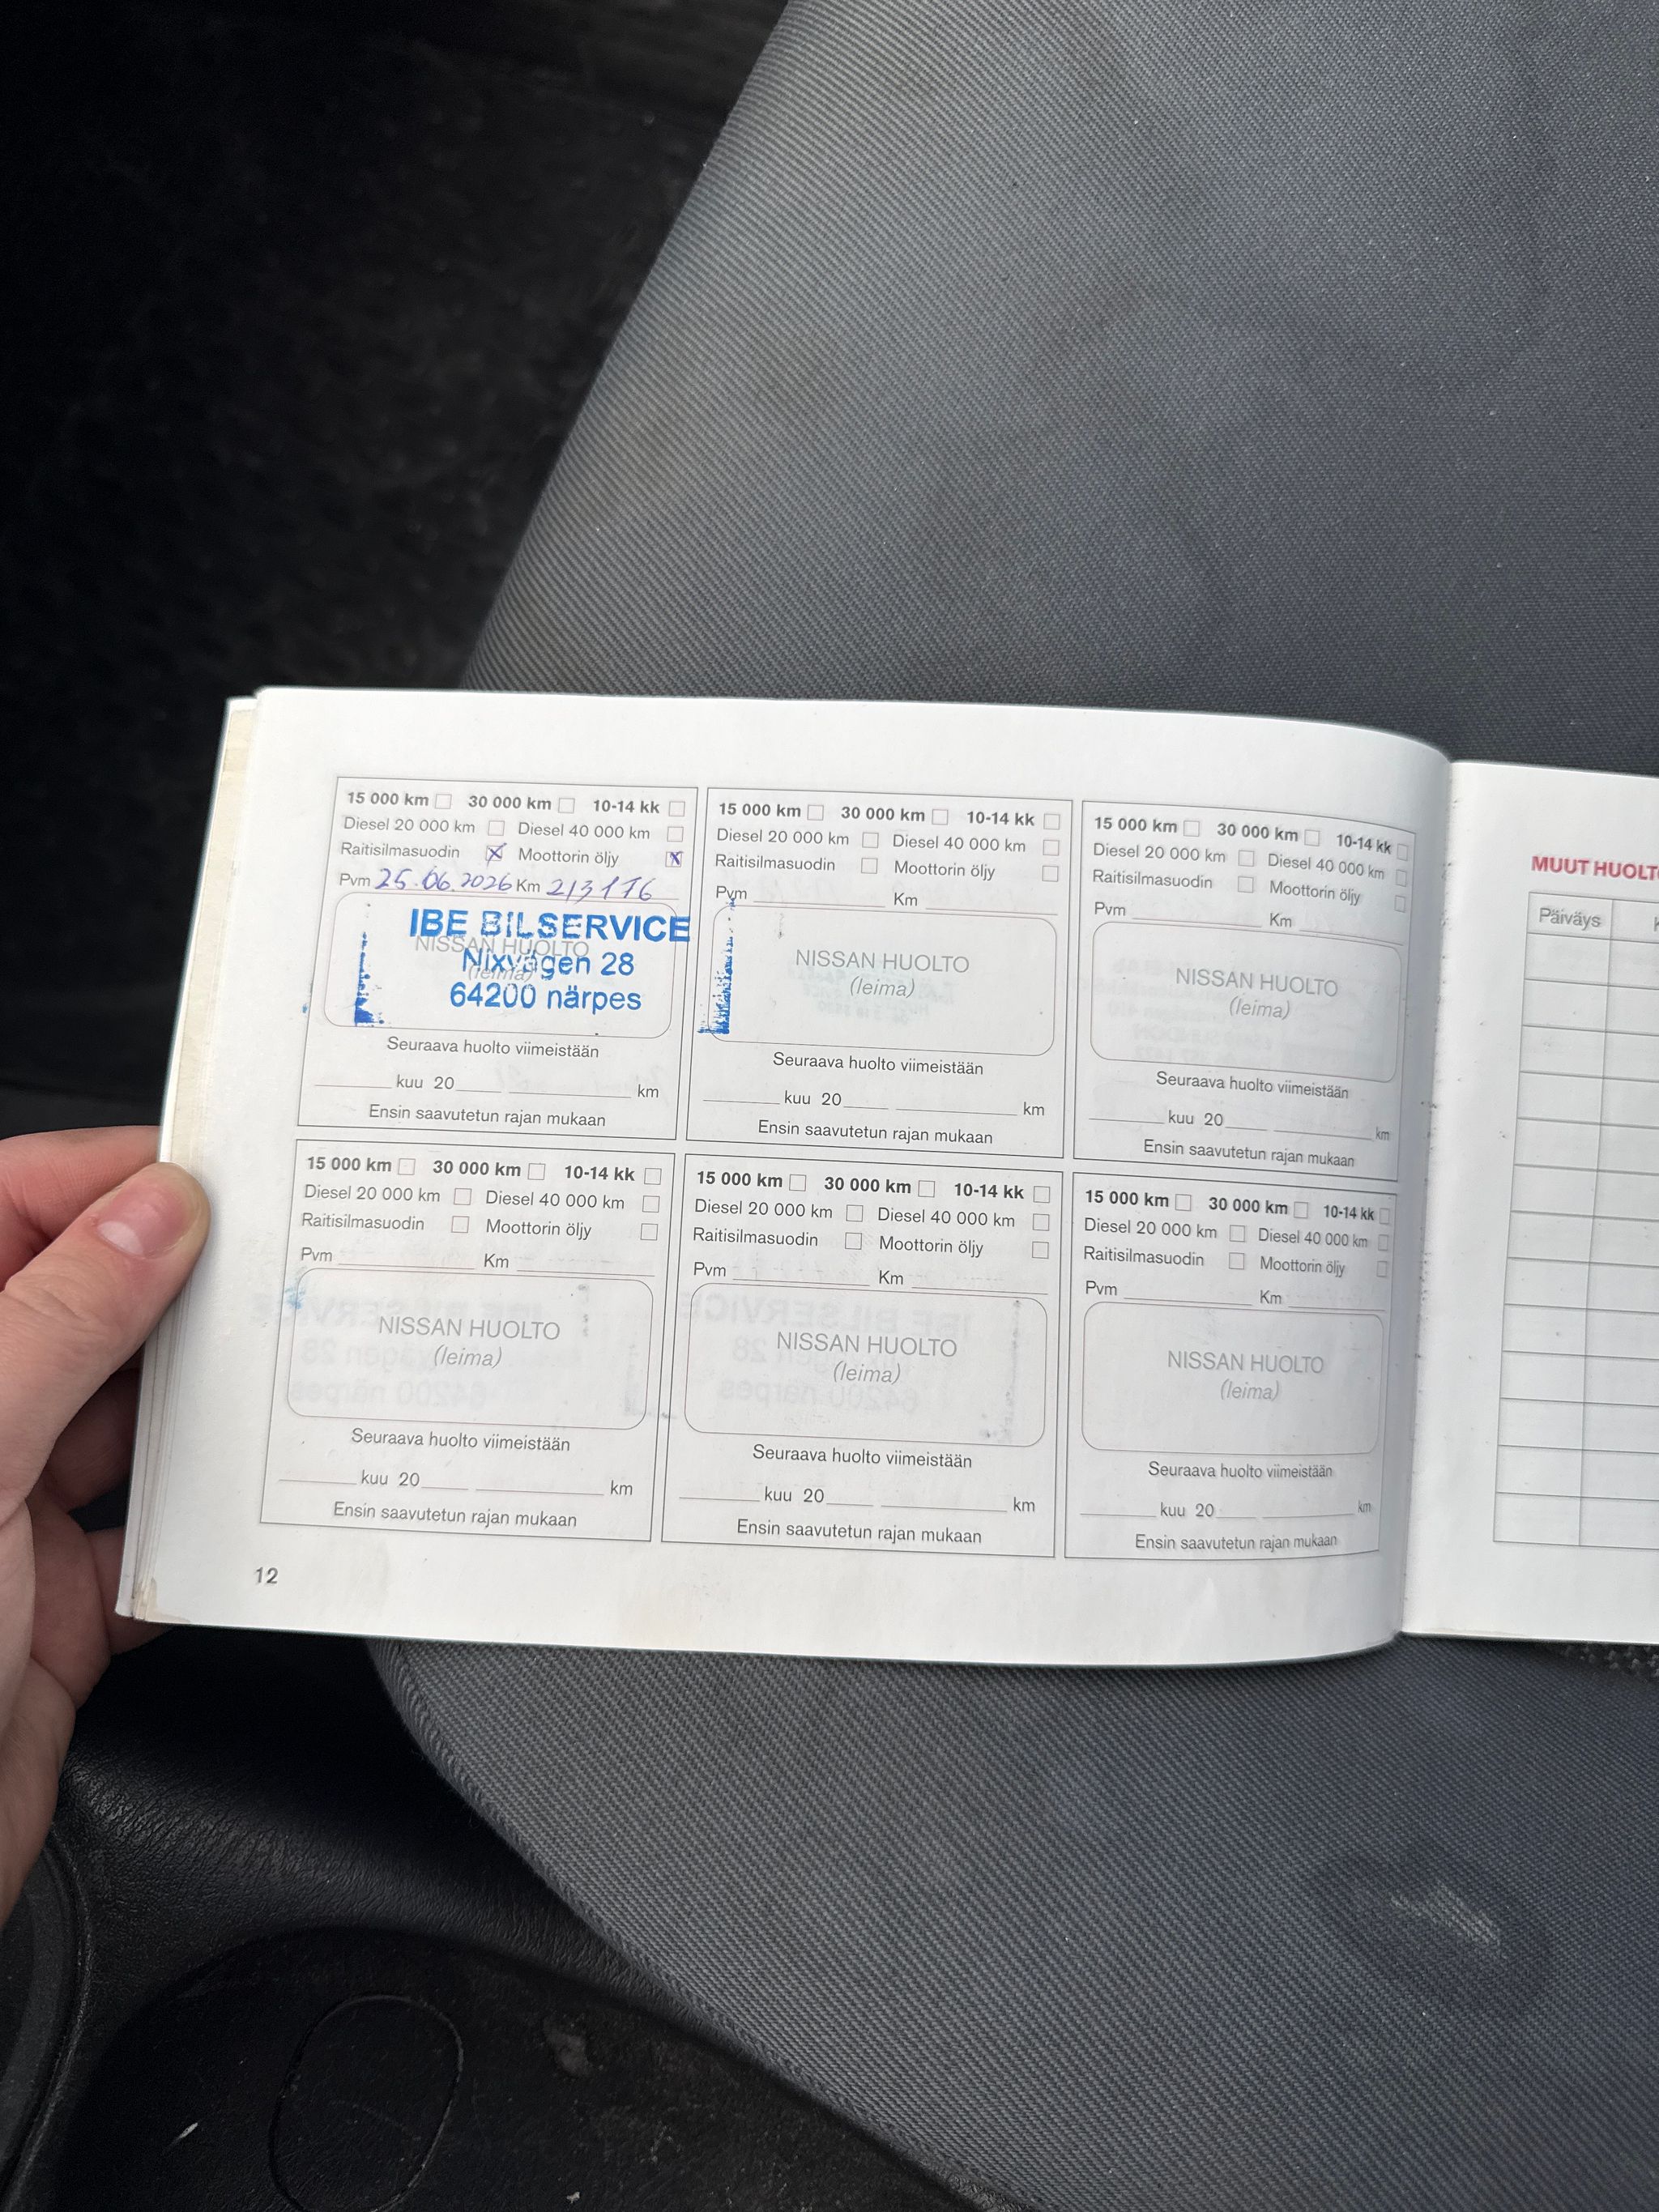 15 000 km 30 000 km 10-14 kk
Diesel 20 000 km Diesel 40 000 km
Raitisilmasuodin X Moottorin öljy X
Pvm 25.06.2026 Km 213176
IBE BILSERVICE
NISSAN HUOLTO
Nixvägen 28
(leima)
64200 närpes
Seuraava huolto viimeistään
kuu 20 km
Ensin saavutetun rajan mukaan
15 000 km 30 000 km 10-14 kk
Diesel 20 000 km Diesel 40 000 km
Raitisilmasuodin Moottorin öljy
Pvm Km
NISSAN HUOLTO
(leima)
Seuraava huolto viimeistään
kuu 20 km
Ensin saavutetun rajan mukaan
15 000 km 30 000 km 10-14 kk
Diesel 20 000 km Diesel 40 000 km
Raitisilmasuodin Moottorin öljy
Pvm Km
NISSAN HUOLTO
(leima)
Seuraava huolto viimeistään
kuu 20 km
Ensin saavutetun rajan mukaan
15 000 km 30 000 km 10-14 kk
Diesel 20 000 km Diesel 40 000 km
Raitisilmasuodin Moottorin öljy
Pvm Km
NISSAN HUOLTO
(leima)
Seuraava huolto viimeistään
kuu 20 km
Ensin saavutetun rajan mukaan
15 000 km 30 000 km 10-14 kk
Diesel 20 000 km Diesel 40 000 km
Raitisilmasuodin Moottorin öljy
Pvm Km
NISSAN HUOLTO
(leima)
Seuraava huolto viimeistään
kuu 20 km
Ensin saavutetun rajan mukaan
15 000 km 30 000 km 10-14 kk
Diesel 20 000 km Diesel 40 000 km
Raitisilmasuodin Moottorin öljy
Pvm Km
NISSAN HUOLTO
(leima)
Seuraava huolto viimeistään
kuu 20 km
Ensin saavutetun rajan mukaan
12
MUUT HUOLTO
Päiväys